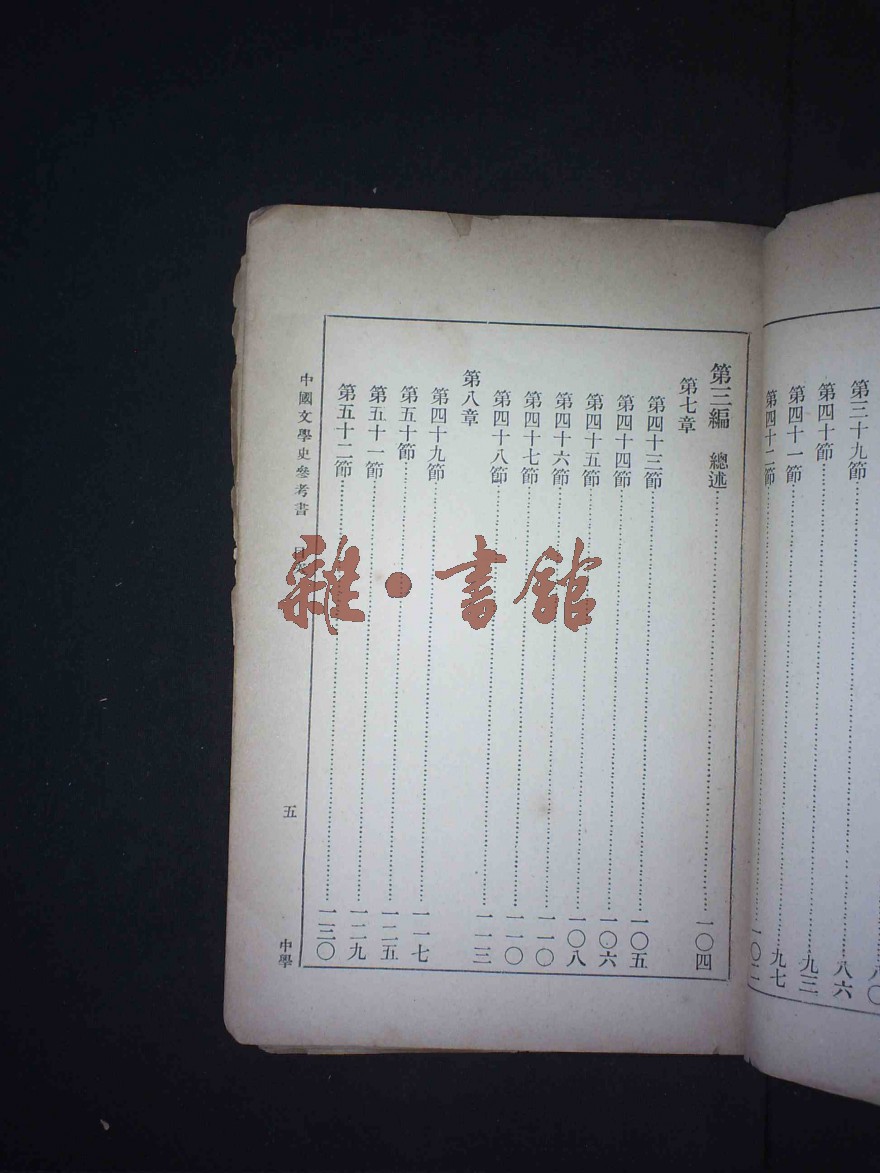 八〇
第三十九節……八六
第四十節……九三
第四十一節……九七
第四十二節……一〇二
第三編 總述……一〇四
第七章
第四十三節……一〇五
第四十四節……一〇六
第四十五節……一〇八
第四十六節……一一〇
第四十七節……一一〇
第四十八節……一一三
第八章
第四十九節……一一七
第五十節……一二五
第五十一節……一二九
第五十二節……一三〇
中國文學史參考書 五 中學
雜·書館